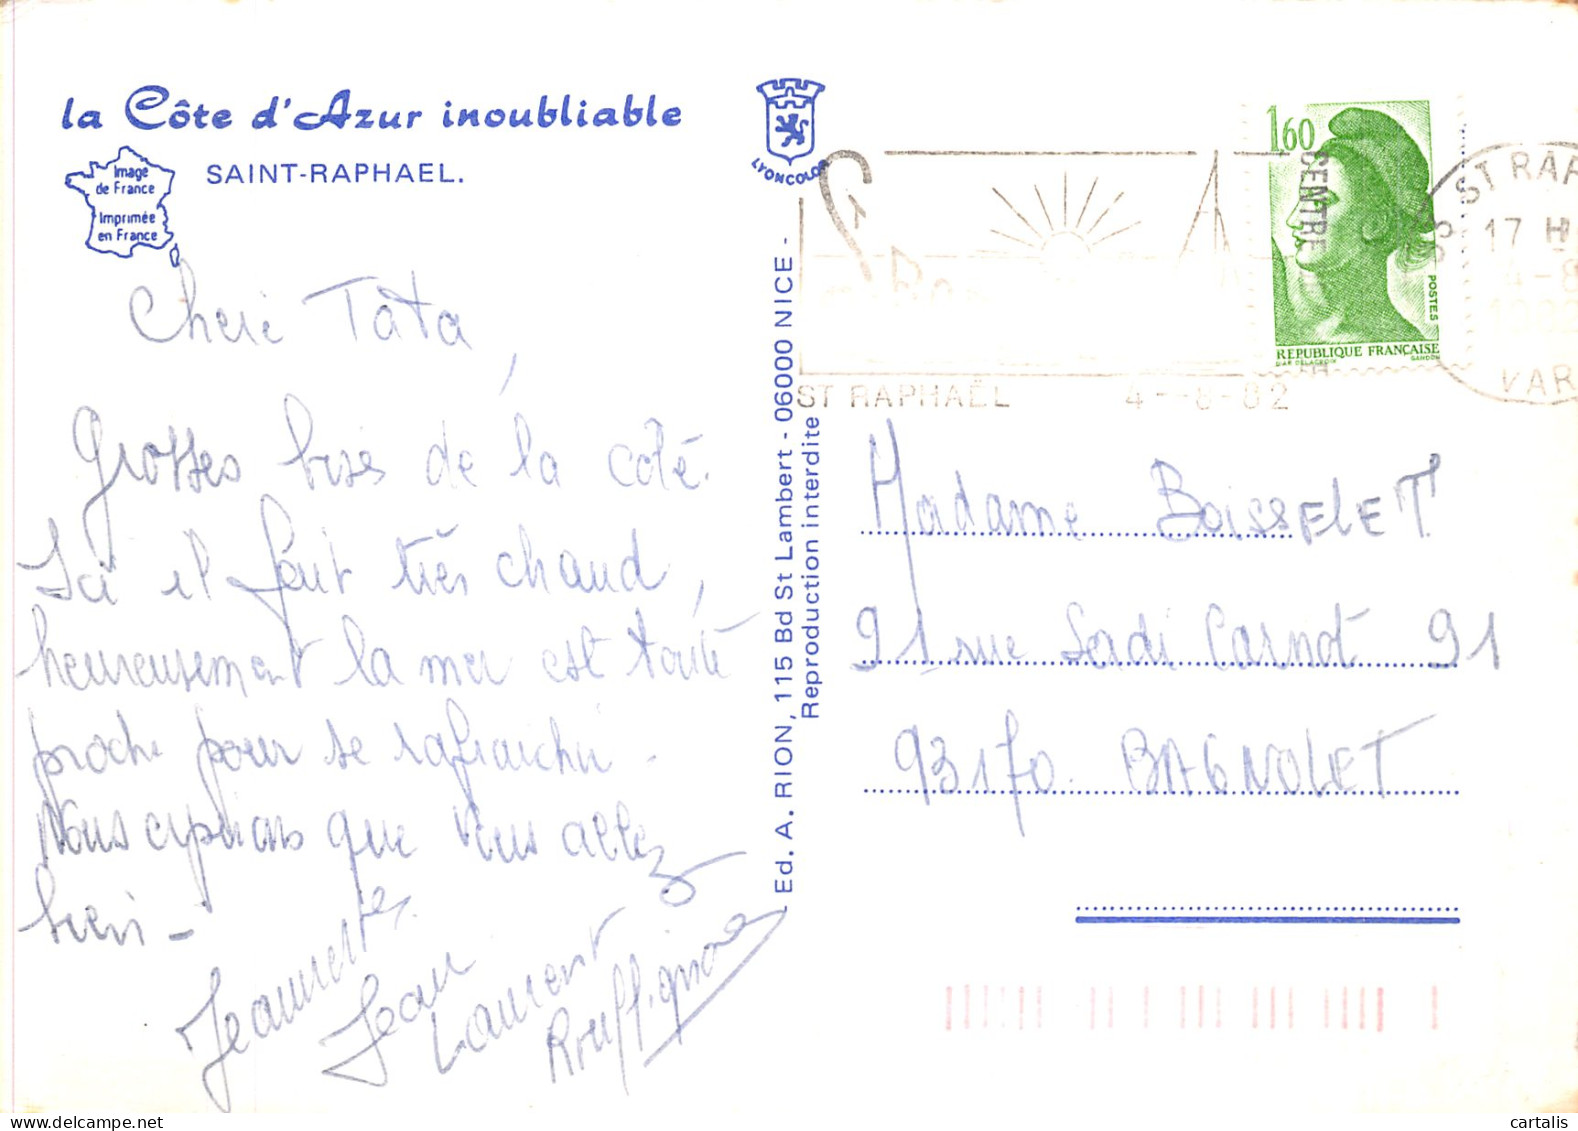 la Côte d'Azur inoubliable
SAINT-RAPHAEL.
Image
de France
Imprimée
en France
LYONCOLOR
Cherie Tata,
Grosses bises de la côte.
Ici il fait très chaud,
heureusement la mer est toute
proche pour se rafraichir.
Nous espérons que vous allez
bien -
Jeannette
Jean
Laurent
Rouffignac
Ed. A. RION, 115 Bd St Lambert - 06000 NICE -
Reproduction interdite
1,60
POSTES
REPUBLIQUE FRANÇAISE
D'AP. DELACROIX GANDON
CENTRE
ST RAPHAËL 4--8-82
ST RAP
17 H
4-8
1982
VAR
Madame BoisselET
91 rue Sadi Carnot 91
93170. BAGNOLET
cartalis.com